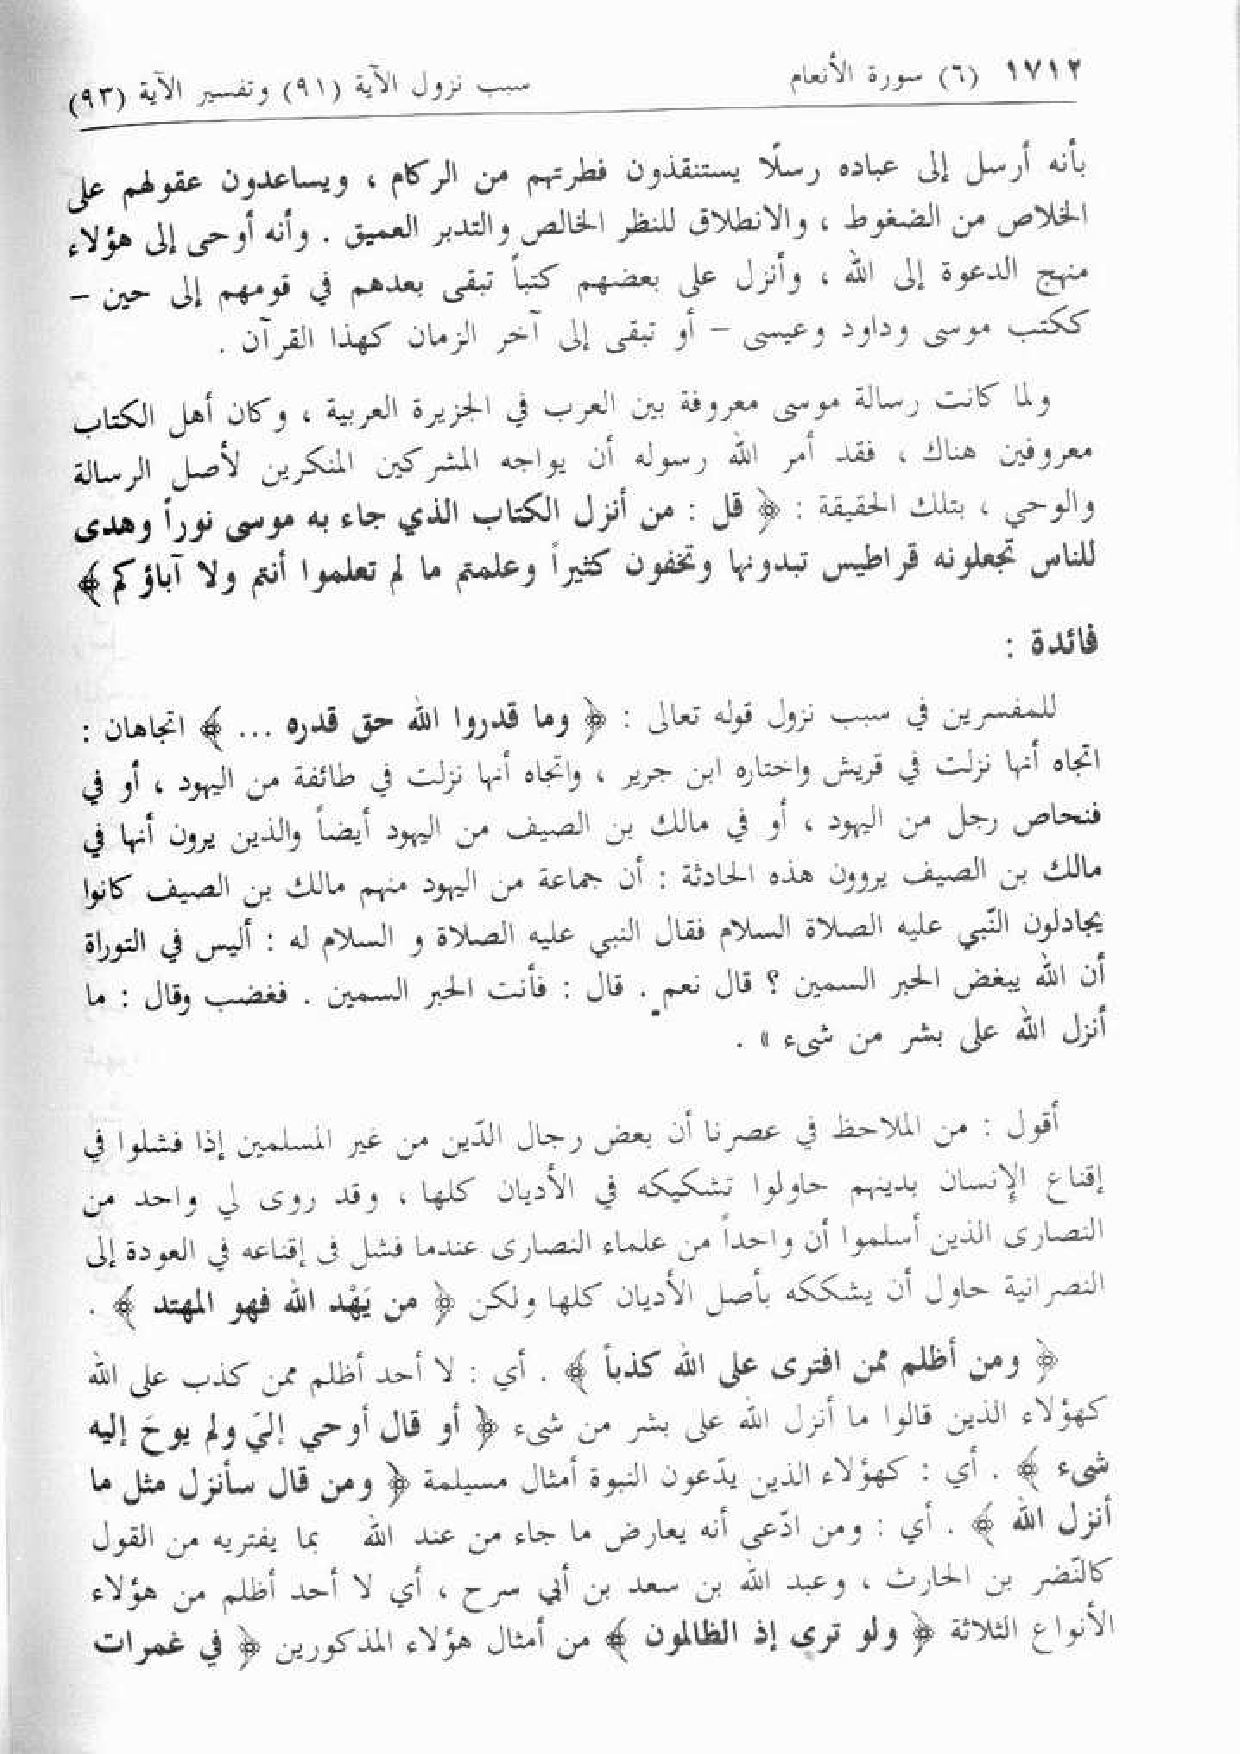 ١٧١٢ (٦) سورة الأنعام سبب نزول الآية (٩١) وتفسير الآية (٩٣)
بأنه أرسل إلى عباده رسلًا يستنقذون فطرتهم من الركام ، ويساعدون عقولهم على
الخلاص من الضغوط ، والانطلاق للنظر الخالص والتدبر العميق . وأنه أوحى إلى هؤلاء
منهج الدعوة إلى الله ، وأنزل على بعضهم كتباً تبقى بعدهم في قومهم إلى حين –
ككتب موسى وداود وعيسى – أو تبقى إلى آخر الزمان كهذا القرآن .
ولما كانت رسالة موسى معروفة بين العرب في الجزيرة العربية ، وكان أهل الكتاب
معروفين هناك ، فقد أمر الله رسوله أن يواجه المشركين المنكرين لأصل الرسالة
والوحي ، بتلك الحقيقة : ﴿ قل : من أنزل الكتاب الذي جاء به موسى نوراً وهدى
للناس تجعلونه قراطيس تبدونها وتخفون كثيراً وعلمتم ما لم تعلموا أنتم ولا آباؤكم ﴾
فائدة :
للمفسرين في سبب نزول قوله تعالى : ﴿ وما قدروا الله حق قدره ... ﴾ اتجاهان :
اتجاه أنها نزلت في قريش واختاره ابن جرير ، واتجاه أنها نزلت في طائفة من اليهود ، أو في
فنحاص رجل من اليهود ، أو في مالك بن الصيف من اليهود أيضاً والذين يرون أنها في
مالك بن الصيف يروون هذه الحادثة : أن جماعة من اليهود منهم مالك بن الصيف كانوا
يجادلون النّبي عليه الصلاة السلام فقال النبي عليه الصلاة و السلام له : أليس في التوراة
أن الله يبغض الحبر السمين ؟ قال نعم . قال : فأنت الحبر السمين . فغضب وقال : ما
أنزل الله على بشر من شىء » .
أقول : من الملاحظ في عصرنا أن بعض رجال الدّين من غير المسلمين إذا فشلوا في
إقناع الإنسان بدينهم حاولوا تشكيكه في الأديان كلها ، وقد روى لي واحد من
النصارى الذين أسلموا أن واحداً من علماء النصارى عندما فشل فى إقناعه في العودة إلى
النصرانية حاول أن يشككه بأصل الأديان كلها ولكن ﴿ من يَهْد الله فهو المهتد ﴾ .
﴿ ومن أظلم ممن افترى على الله كذباً ﴾ . أي : لا أحد أظلم ممن كذب على الله
كهؤلاء الذين قالوا ما أنزل الله على بشر من شىء ﴿ أو قال أوحي إليّ ولم يوحَ إليه
شىء ﴾ . أي : كهؤلاء الذين يدّعون النبوة أمثال مسيلمة ﴿ ومن قال سأنزل مثل ما
أنزل الله ﴾ . أي : ومن ادّعى أنه يعارض ما جاء من عند الله بما يفتريه من القول
كالنّضر بن الحارث ، وعبد الله بن سعد بن أبي سرح ، أي لا أحد أظلم من هؤلاء
الأنواع الثلاثة ﴿ ولو ترى إذ الظالمون ﴾ من أمثال هؤلاء المذكورين ﴿ في غمرات